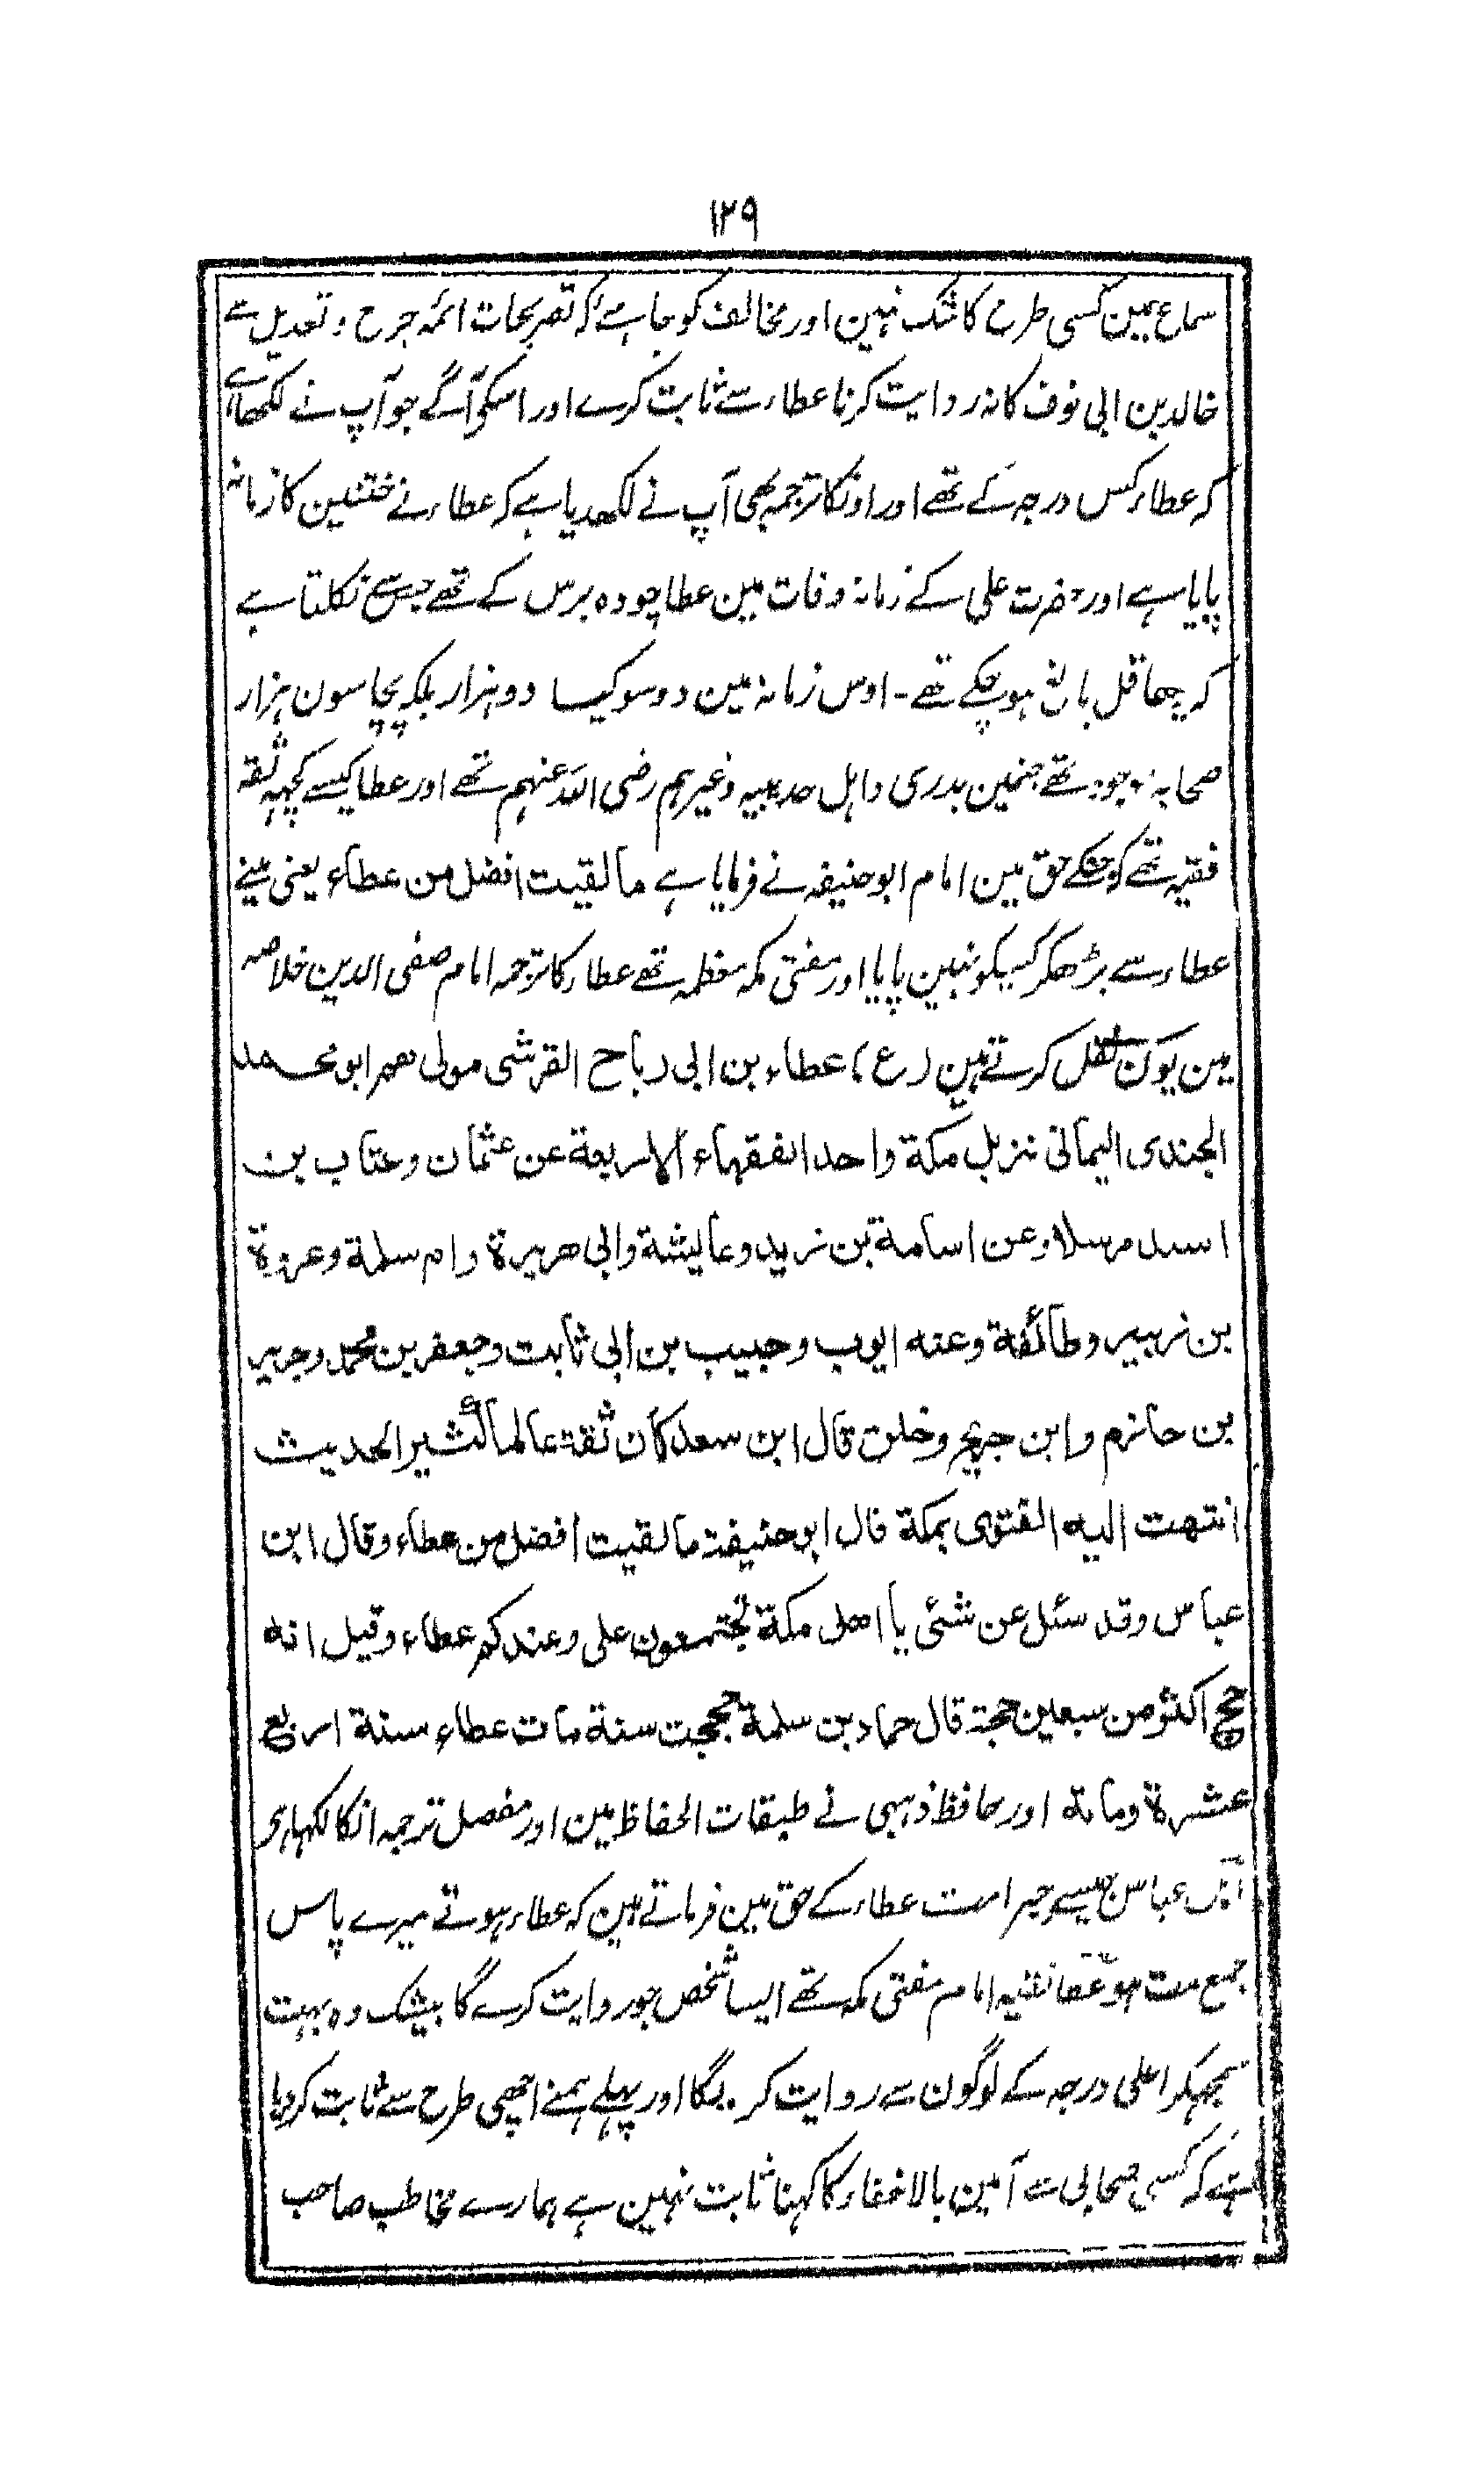 ۱۲۹
سماع مین کسی طرح کا شک نہین اور مخالف کو چاہئے کہ تصریحات ائمہ جرح و تعدیل سے
خالد بن ابی نوف کا نہ روایت کرنا عطاء سے ثابت کرے اور اسکی آگے جو آپ نے لکھا ہے
کہ عطاء کس درجہ کے تھے اور اونکا ترجمہ بھی آپ نے لکھدیا ہے کہ عطاء نے ختنین کا زمانہ
پایا ہے اور حضرت علی کے زمانہ وفات مین عطا چودہ برس کے تھے جس سے نکلتا ہے
کہ عاقل بالغ ہو چکے تھے - اوس زمانہ مین دو سو کیسا دو ہزار بلکہ پچاسون ہزار
صحابہ موجود تھے جنمین بدری و اہل حدیبیہ و غیرہم رضی اللہ عنہم تھے اور عطا کیسے کچہہ ثقہ
فقیہ تھے کہ جنکے حق مین امام ابو حنیفہ نے فرمایا ہے ما لقیت افضل من عطاء یعنی مینے
عطاء سے بڑھکر کسیکو نہین پایا اور مفتی مکہ معظمہ تھے عطاء کا ترجمہ امام صفی الدین خلاصہ
مین یون نقل کرتے ہین (ع) عطاء بن ابی رباح القرشی مولی ھم ابو محمد
الجندی الیمانی نزیل مکة واحد الفقہاء الاربعة عن عثمان وعتاب بن
اسید مرسلا وعن اسامة بن زید وعایشة وابی ھریرة وام سلمة وعروة
بن زبیر وطائفة وعنه ایوب وحبیب بن ابی ثابت وجعفر بن محمد وجریر
بن حازم وابن جریج وخلق قال ابن سعد کان ثقة عالما کثیر الحدیث
انتھت الیه الفتوی بمکة قال ابو حنیفة ما لقیت افضل من عطاء وقال ابن
عباس وقد سئل عن شئی یا اھل مکة تجتمعون علی وعندکم عطاء وقیل انه
حج اکثر من سبعین حجة قال حماد بن سلمة حججت سنة مات عطاء سنة اربع
عشرة ومائة اور حافظ ذہبی نے طبقات الحفاظ مین اور مفصل ترجمہ انکا لکھا ہی
ابن عباس جیسے حبر امت عطاء کے حق مین فرماتے ہین کہ عطاء ہوتے میرے پاس
جمع مت ہو فقیہ امام مفتی مکہ تھے ایسا شخص جو روایت کرے گا بیشک وہ بہت
سمجہکر اعلی درجہ کے لوگون سے روایت کریگا اور پہلے ہمنے اچھی طرح سے ثابت کر دیا
ہے کہ کسی صحابی سے آمین بالاخفاء کا کہنا ثابت نہین ہے ہمارے مخاطب صاحب